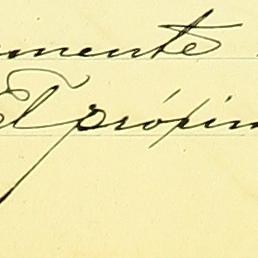 mente
El próxim